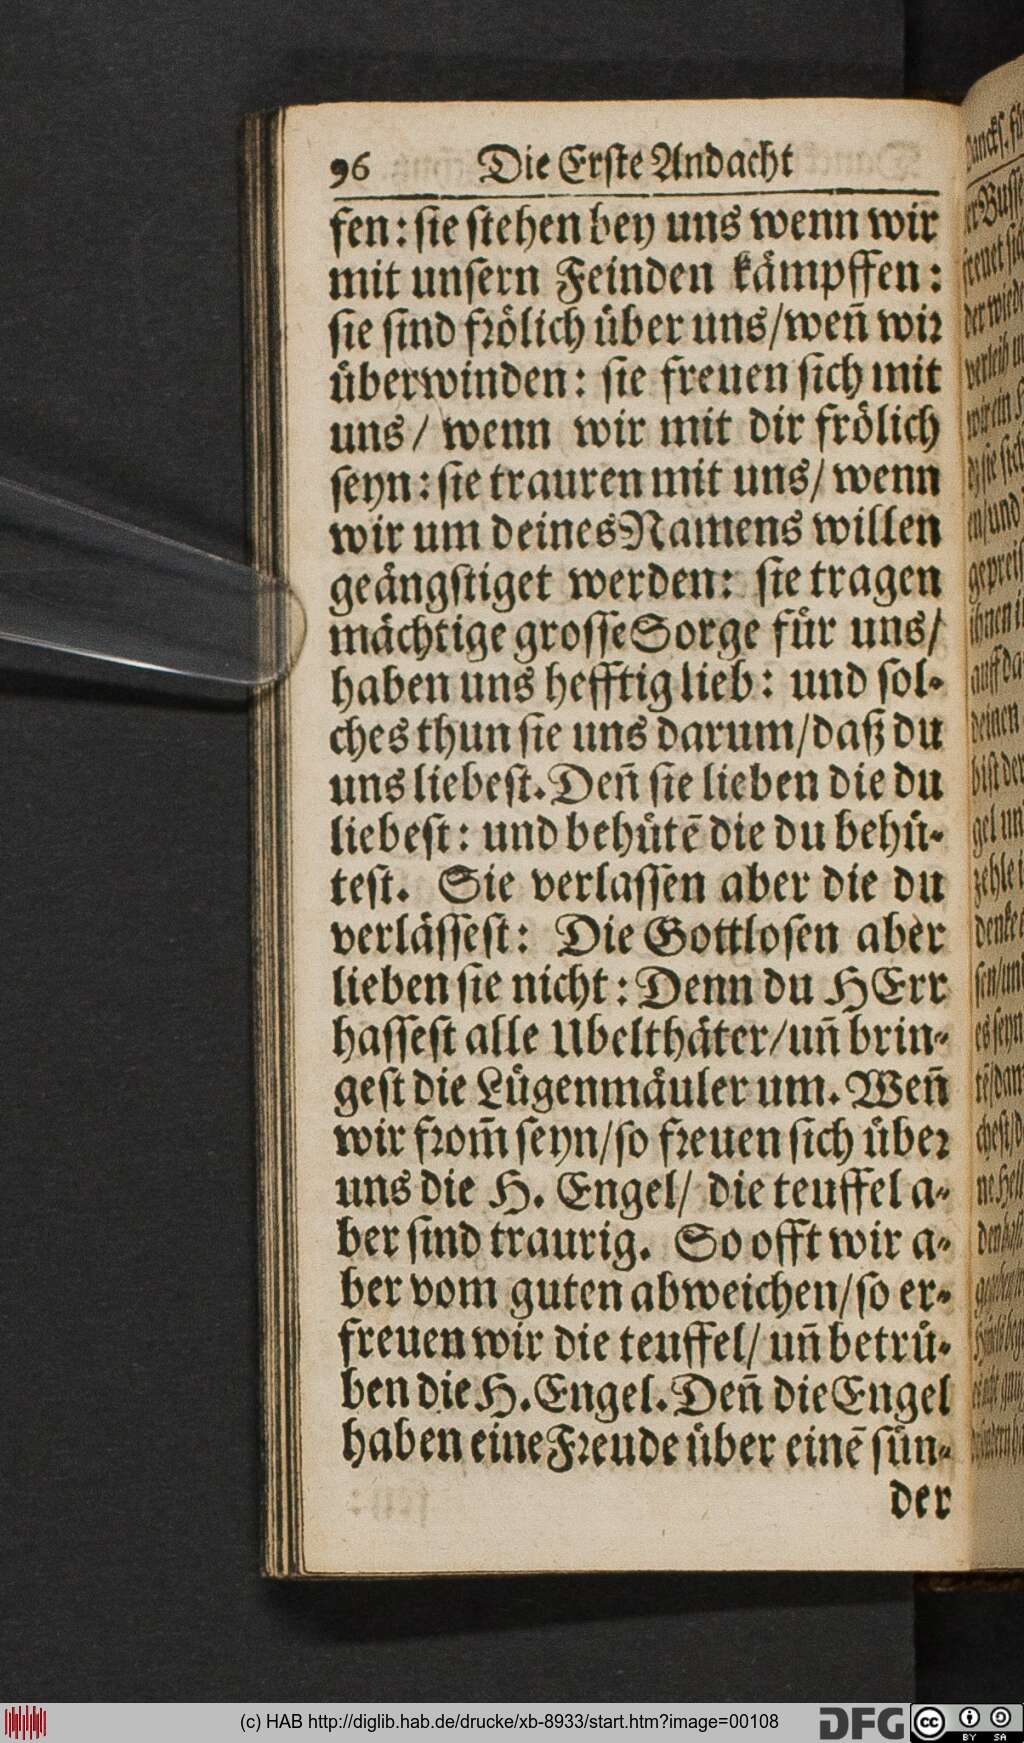 96 Die Erste Andacht
fen: sie stehen bey uns wenn wir
mit unsern Feinden kämpffen:
sie sind frölich über uns/weñ wir
überwinden: sie freuen sich mit
uns/ wenn wir mit dir frölich
seyn: sie trauren mit uns/ wenn
wir um deines Namens willen
geängstiget werden: sie tragen
mächtige grosse Sorge für uns/
haben uns hefftig lieb: und sol-
ches thun sie uns darum/daß du
uns liebest. Deñ sie lieben die du
liebest: und behütẽ die du behü-
test. Sie verlassen aber die du
verlässest: Die Gottlosen aber
lieben sie nicht: Denn du HErr
hassest alle Ubelthäter/uñ brin-
gest die Lügenmäuler um. Weñ
wir from̃ seyn/so freuen sich über
uns die H. Engel/ die teuffel a-
ber sind traurig. So offt wir a-
ber vom guten abweichen/so er-
freuen wir die teuffel/ uñ betrü-
ben die H. Engel. Deñ die Engel
haben eine Freude über einẽ sün-
der
(c) HAB http://diglib.hab.de/drucke/xb-8933/start.htm?image=00108
DFG
cc BY SA